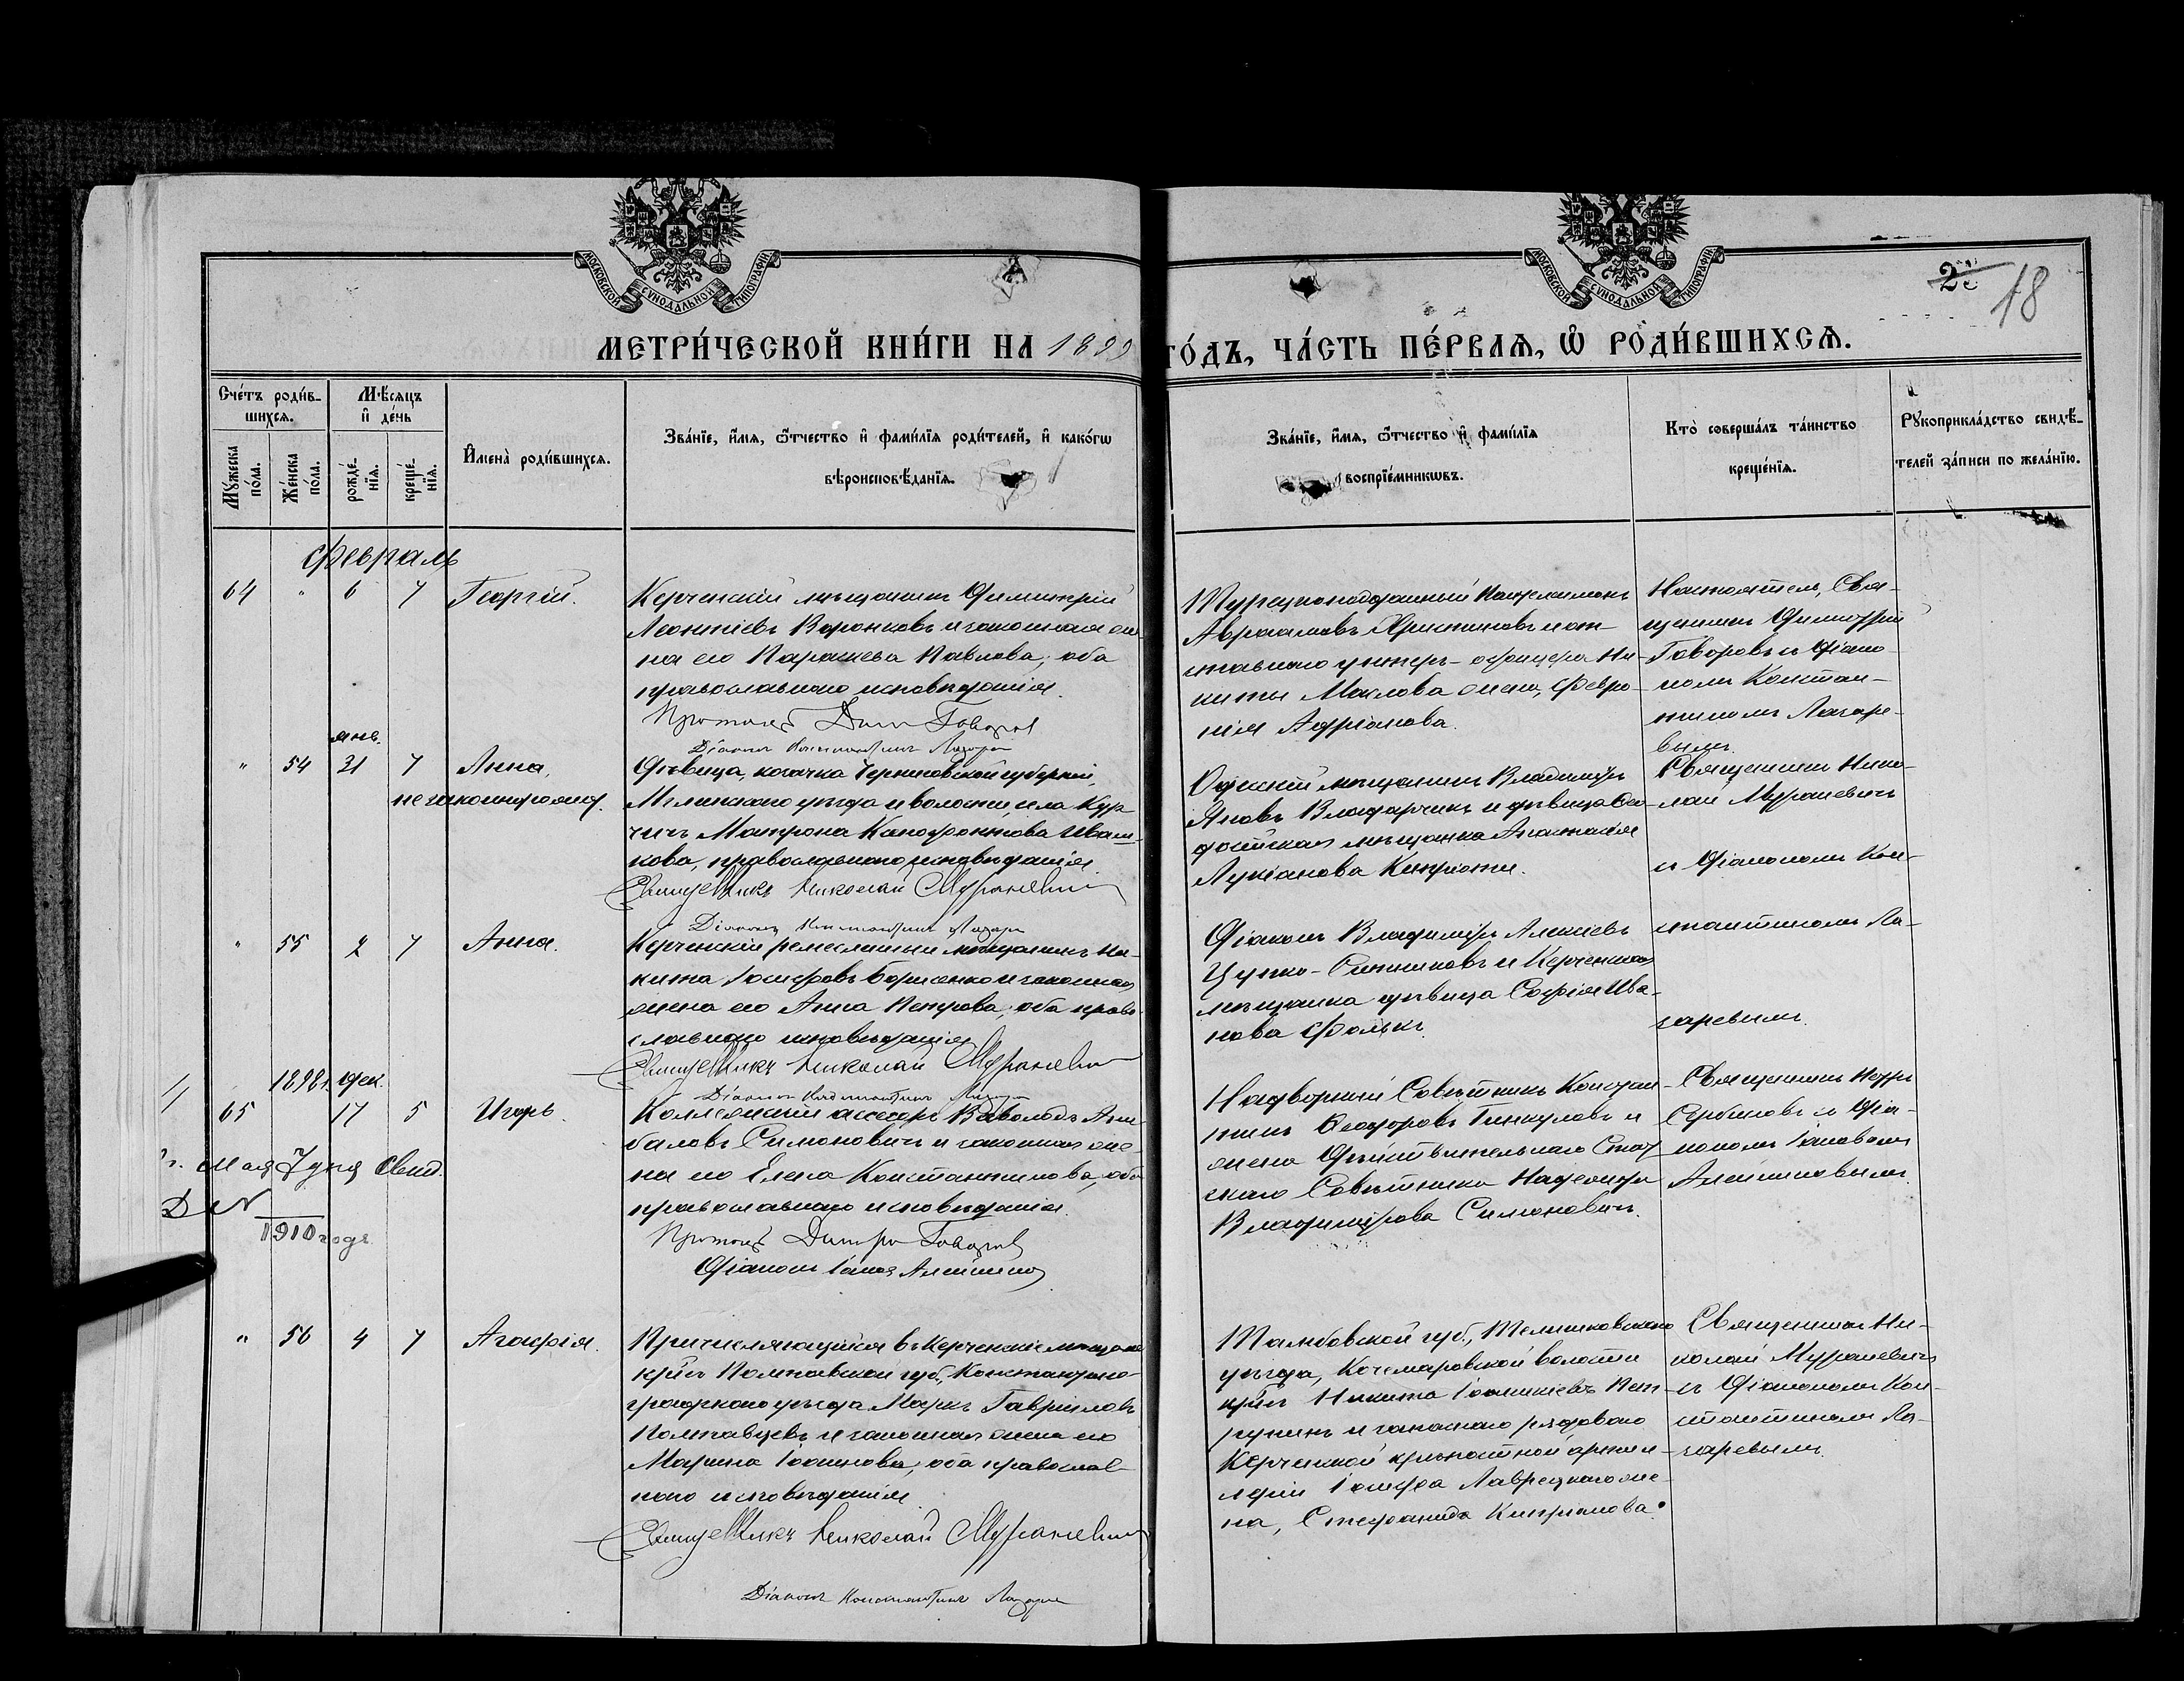 МОСКОВСКОЙ СѴНОДАЛЬНОЙ ТИПОГРАФІИ
МОСКОВСКОЙ СѴНОДАЛЬНОЙ ТИПОГРАФІИ
18
МЕТРИ́ЧЕСКОЙ КНИ́ГИ НА 1899 ГО́ДЪ, ЧА́СТЬ ПЕ́РВАѦ, Ѽ РОДИ́ВШИХСѦ.
Сче́тъ роди́в-
шихсѧ.
Мѣ́сяцъ
и҆ де́нь
Му́жеска по́ла.
Же́нска по́ла.
рожде́-нїѧ.
креще́-нїѧ.
И҆мена̀ роди́вшихсѧ.
Зва́нїе, и҆́мѧ, ѻ҆́тчество и҆ фами́лїѧ роди́телей, и҆ како́гѡ
вѣроисповѣ́данїѧ.
Зва́нїе, и҆́мѧ, ѻ҆́тчество и҆ фами́лїѧ
воспрїе́мникѡвъ.
Кто̀ соверша́лъ та́инство
креще́нїѧ.
Рꙋкоприкла́дство свидѣ́-
телей за́писи по жела́нїю.
Февраль
64 " 6 7 Георгій.
Керченскій мѣщанинъ Димитрій
Леонтіевъ Воронковъ и законная же
на его Параскева Павлова; оба
православнаго исповѣданія.
Діаконъ Константинъ Лазаре
Авраамовъ Христиновъ и от-
ставнаго унтеръ-офицера Ни-
киты Маслова жена, Февро-
нія Адріанова.
Настоятель, Свя-
щенникъ Димитрій
Говоровъ и діако-
номъ Констан-
тиномъ Лазаре-
вымъ.
янв.
" 54 31 7 Анна,
незаконнорожд.
Дѣвица, козачка Черниговской губерніи,
Мглинскаго уѣзда и волости, села Кур-
чичъ Матрона Ксенофонтова Иваш-
кова, православнаго исповѣданія.
Священникъ Николай Мураневичъ
Діаконъ Константинъ Лазаре
Одесскій мѣщанинъ Владимиръ
Яковъ Владарчикъ и дѣвица Ѳео-
досійская мѣщанка Анастасія
Лукіанова
Священникъ Нико-
лай Мураневичъ
и діакономъ Кон-
" 55 2 7 Анна.
Керченскій ремесленный мѣщанинъ Ни-
кита Іосифовъ Борисенко и законная
жена его Анна Петрова; оба право-
славнаго исповѣданія
Священникъ Николай Мураневичъ
Діаконъ Константинъ
Діаконъ Владимиръ Алексіевъ
Цупко-Ситниковъ и Керченская
мѣщанка дѣвица Софія Ива-
нова Фолькъ.
стантиномъ Ла-
заревымъ.
1898г. дек.
65 17 5 Игорь.
Коллежскій ассесоръ Всеволодъ
баловъ Симоновичъ и законная же-
на его Елена Константинова, оба
православнаго исповѣданія.
Діаконъ Іаковъ
Надворный Совѣтникъ Констан-
тинъ Ѳеодоровъ Гинкуловъ и
жена Дѣйствительнаго Стат-
скаго Совѣтника Надежда
Владимірова Симоновичъ.
Священникъ Петръ
Сербиновъ и діа-
кономъ Іаковомъ
мая 7 дня свид.
№
1910 года
" 56 4 7 Агафія.
Причисляющійся въ Керченскіе мѣщане
кр-нъ Полтавской губ., Константино-
градскаго уѣзда Маркъ Гавриловъ
Полтавцевъ и законная жена его
Марина Іоакимова, оба православ-
наго исповѣданія
Священникъ Николай Мураневичъ
Діаконъ Константинъ Лазарев
Тамбовской губ.,
уѣзда, Кочемаровской волости
кр-нъ Никита Іоанникіевъ Пет-
рунинъ и запаснаго рядоваго
Керченской крѣпостной артил-
леріи Іосифа Лаврецкаго же-
на, Стефанида Кипріанова.
Священникъ Ни-
колай Мураневичъ
и діакономъ Кон-
стантиномъ Ла-
заревымъ.